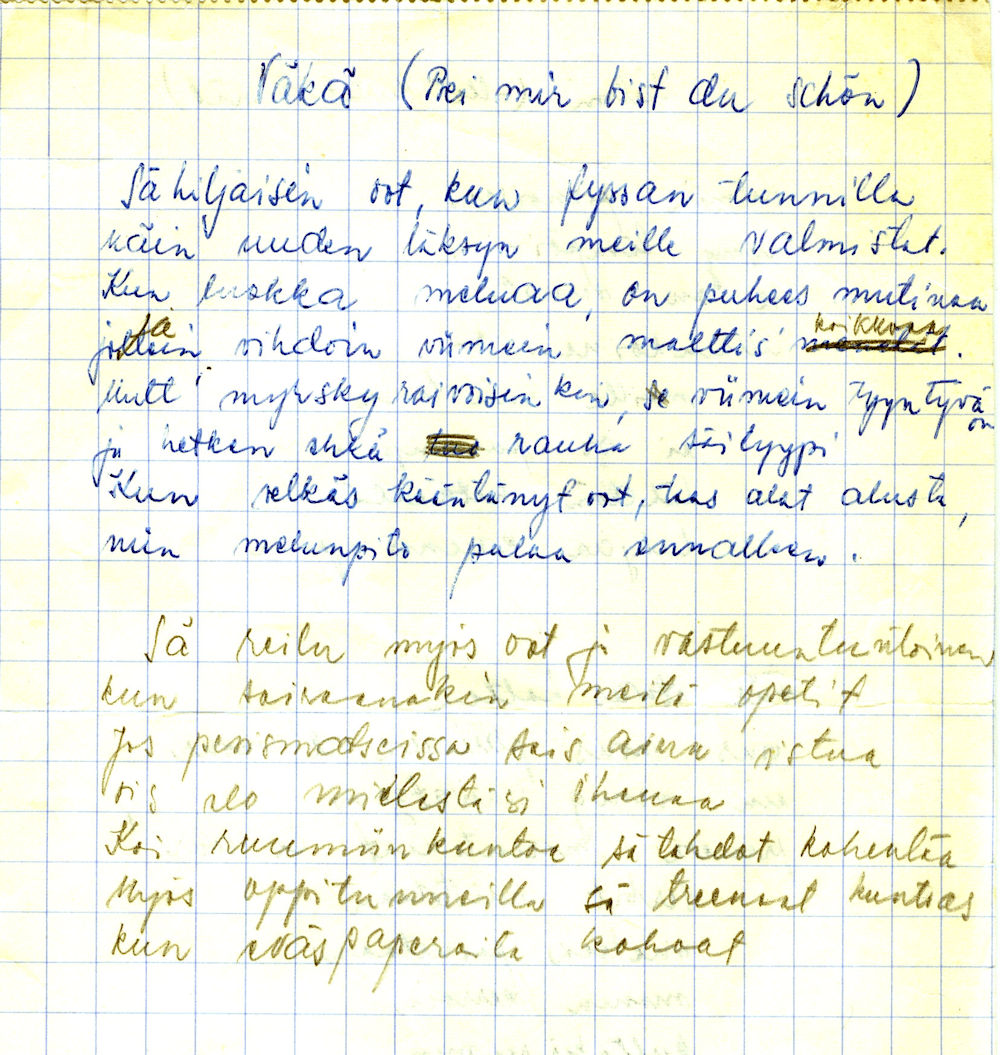 Väkä (Bei mir bist du schön)
Sä hiljaisin oot, kun fyssan tunnilla
näin uuden läksyn meille valmistat.
Kun luokka meluaa, on puhees mutinaa
ja vihdoin viimein malttis' katkeaa.
Mutt' myrsky raivoisinkin, se viimein tyyntyvä on
ja hetken ehkä rauha säilyypi
Kun selkäs kääntänyt oot, taas alat alusta,
niin melunpito palaa ennalleen.
Sä reilu myös oot ja vastuuntuntoinen
kun sairaanakin meitä opetit
Jos penismatseissa sais aina istua
ois elo mielestäsi ihanaa
Koi ruumiinkuntoa sä tahdot kohentaa
Myös oppitunneilla sä treenaat kuntoas
kun eväspapereita kokoat